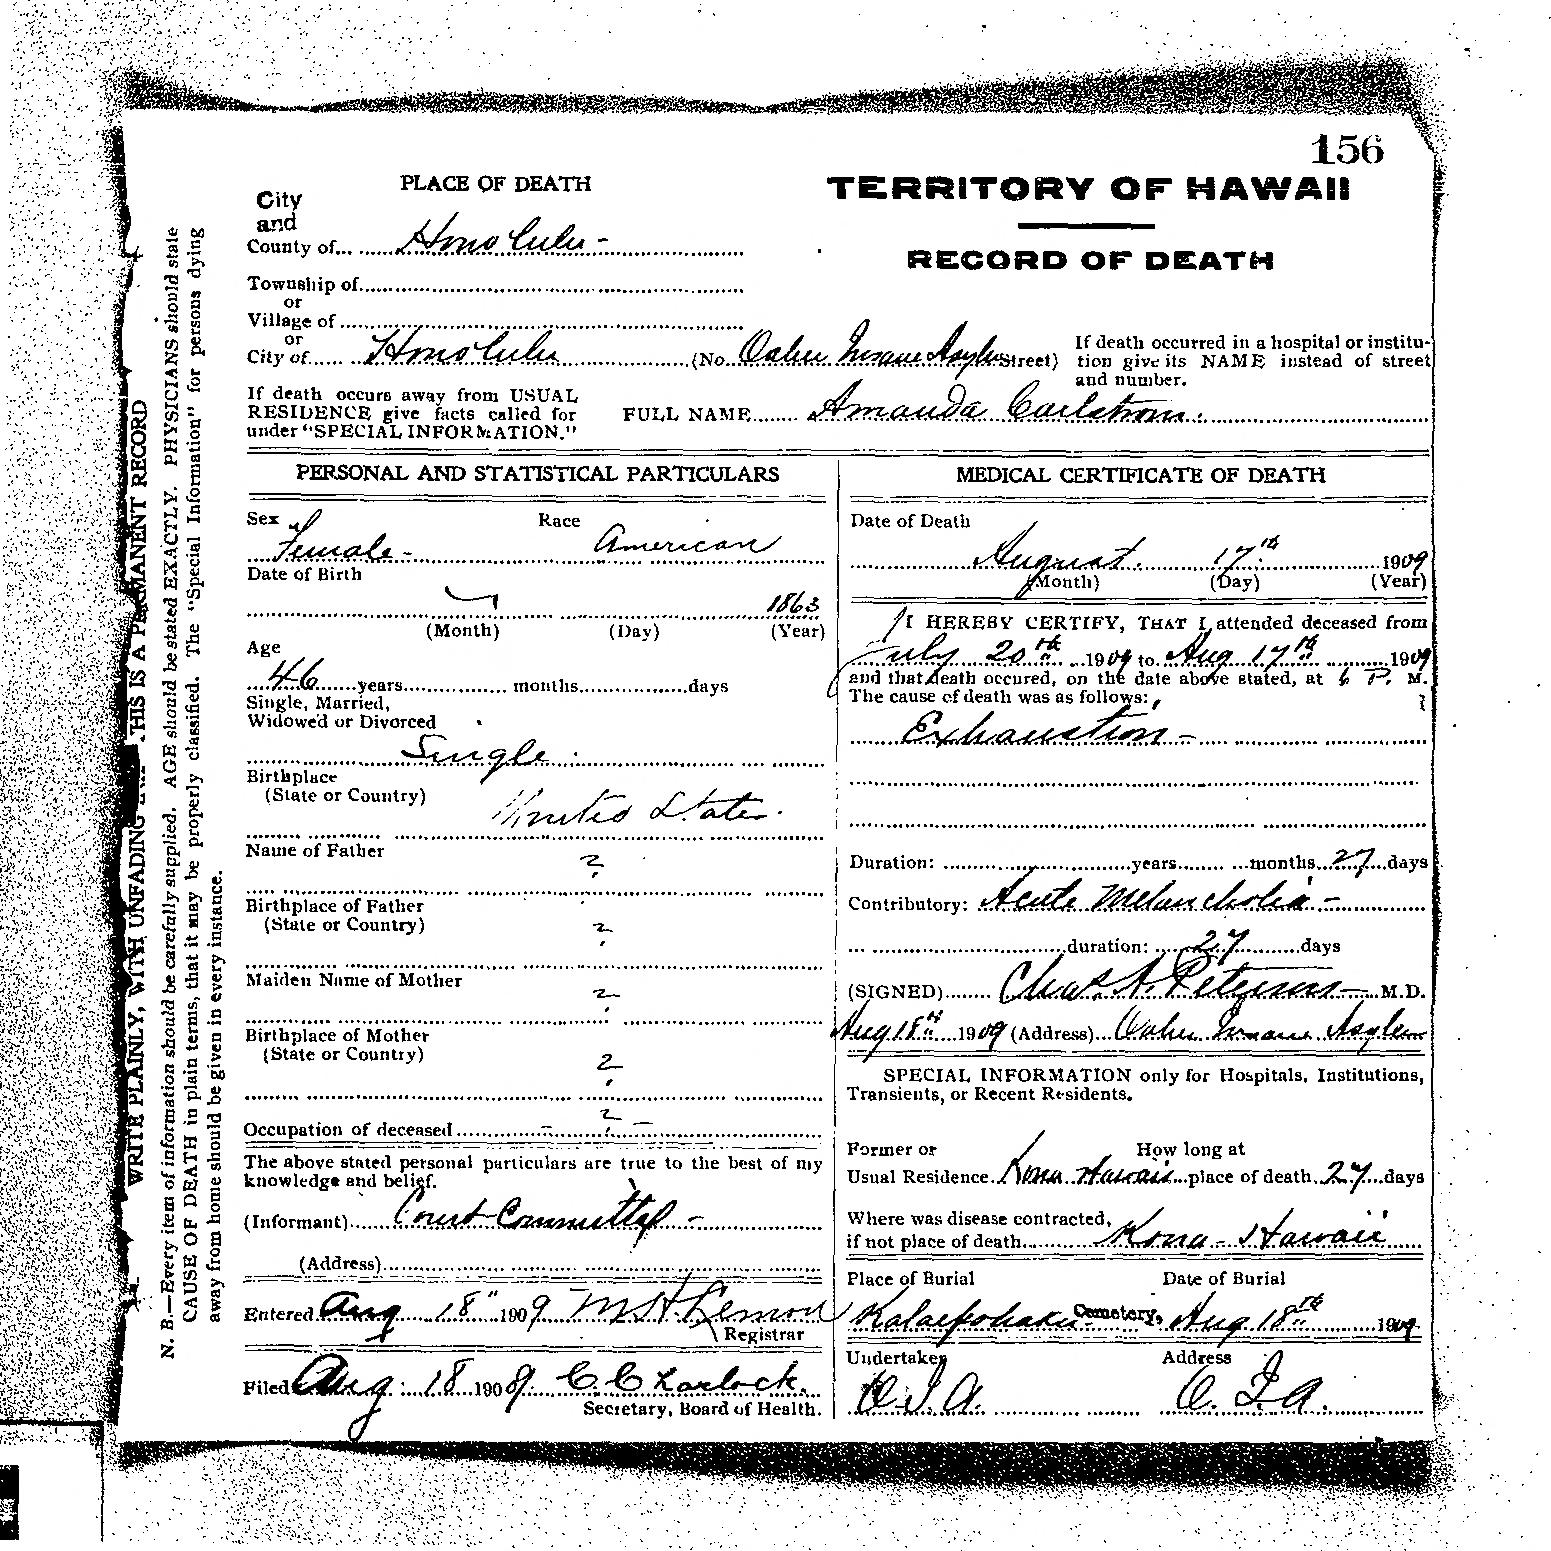 156
PLACE OF DEATH
City
and
County of Honolulu -
Township of
or
Village of
or
City of Honolulu (No. Oahu Insane Asylum Street)
If death occurs away from USUAL
RESIDENCE give facts called for
under "SPECIAL INFORMATION."
TERRITORY OF HAWAII
RECORD OF DEATH
If death occurred in a hospital or institu-
tion give its NAME instead of street
and number.
FULL NAME Amanda Carlstrom.
PERSONAL AND STATISTICAL PARTICULARS
Sex Female - Race American
Date of Birth
1863
(Month) (Day) (Year)
Age
46 years months days
Single, Married,
Widowed or Divorced
Single
Birthplace
(State or Country)
United States.
Name of Father
?
Birthplace of Father
(State or Country)
?
Maiden Name of Mother
?
Birthplace of Mother
(State or Country)
?
Occupation of deceased - ? -
The above stated personal particulars are true to the best of my
knowledge and belief.
(Informant) Court Committal -
(Address)
Entered Aug 18" 1909 M H Lemon
Registrar
Filed Aug. 18 1909 C. C
Secretary, Board of Health.
MEDICAL CERTIFICATE OF DEATH
Date of Death
August 17th 1909
(Month) (Day) (Year)
I HEREBY CERTIFY, THAT I attended deceased from
July 20th 1909 to Aug 17th 1909
and that death occured, on the date above stated, at 6 P. M.
The cause of death was as follows:
Exhaustion -
Duration: years months 27 days
Contributory: Acute Melancholia -
duration: 27 days
(SIGNED) Chas. A. Peterson - M.D.
Aug 18th 1909 (Address) Oahu Insane Asylum
SPECIAL INFORMATION only for Hospitals, Institutions,
Transients, or Recent Residents.
Former or How long at
Usual Residence Kona Hawaii place of death 27 days
Where was disease contracted,
if not place of death Kona - Hawaii
Place of Burial Date of Burial
Kalaepohaku Cemetery, Aug 18th 1909
Undertaker Address
O. I. A. O. I. A.
WRITE PLAINLY, WITH UNFADING THIS IS A PERMANENT RECORD
N. B.—Every item of information should be carefully supplied. AGE should be stated EXACTLY. PHYSICIANS should state
CAUSE OF DEATH in plain terms, that it may be properly classified. The "Special Information" for persons dying
away from home should be given in every instance.